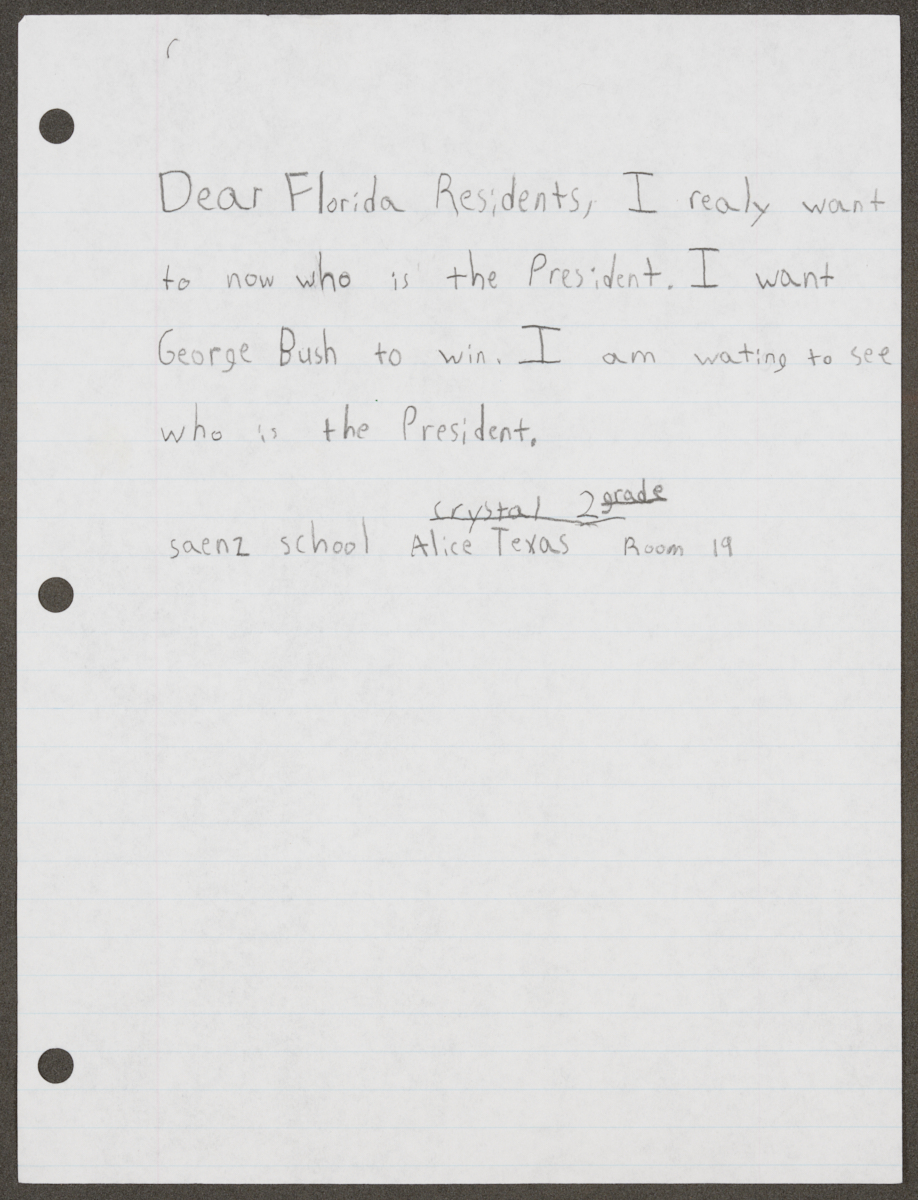 Dear Florida Residents, I realy want
to now who is the President. I want
George Bush to win. I am wating to see
who is the President.
crystal 2 grade
saenz school Alice Texas Room 19